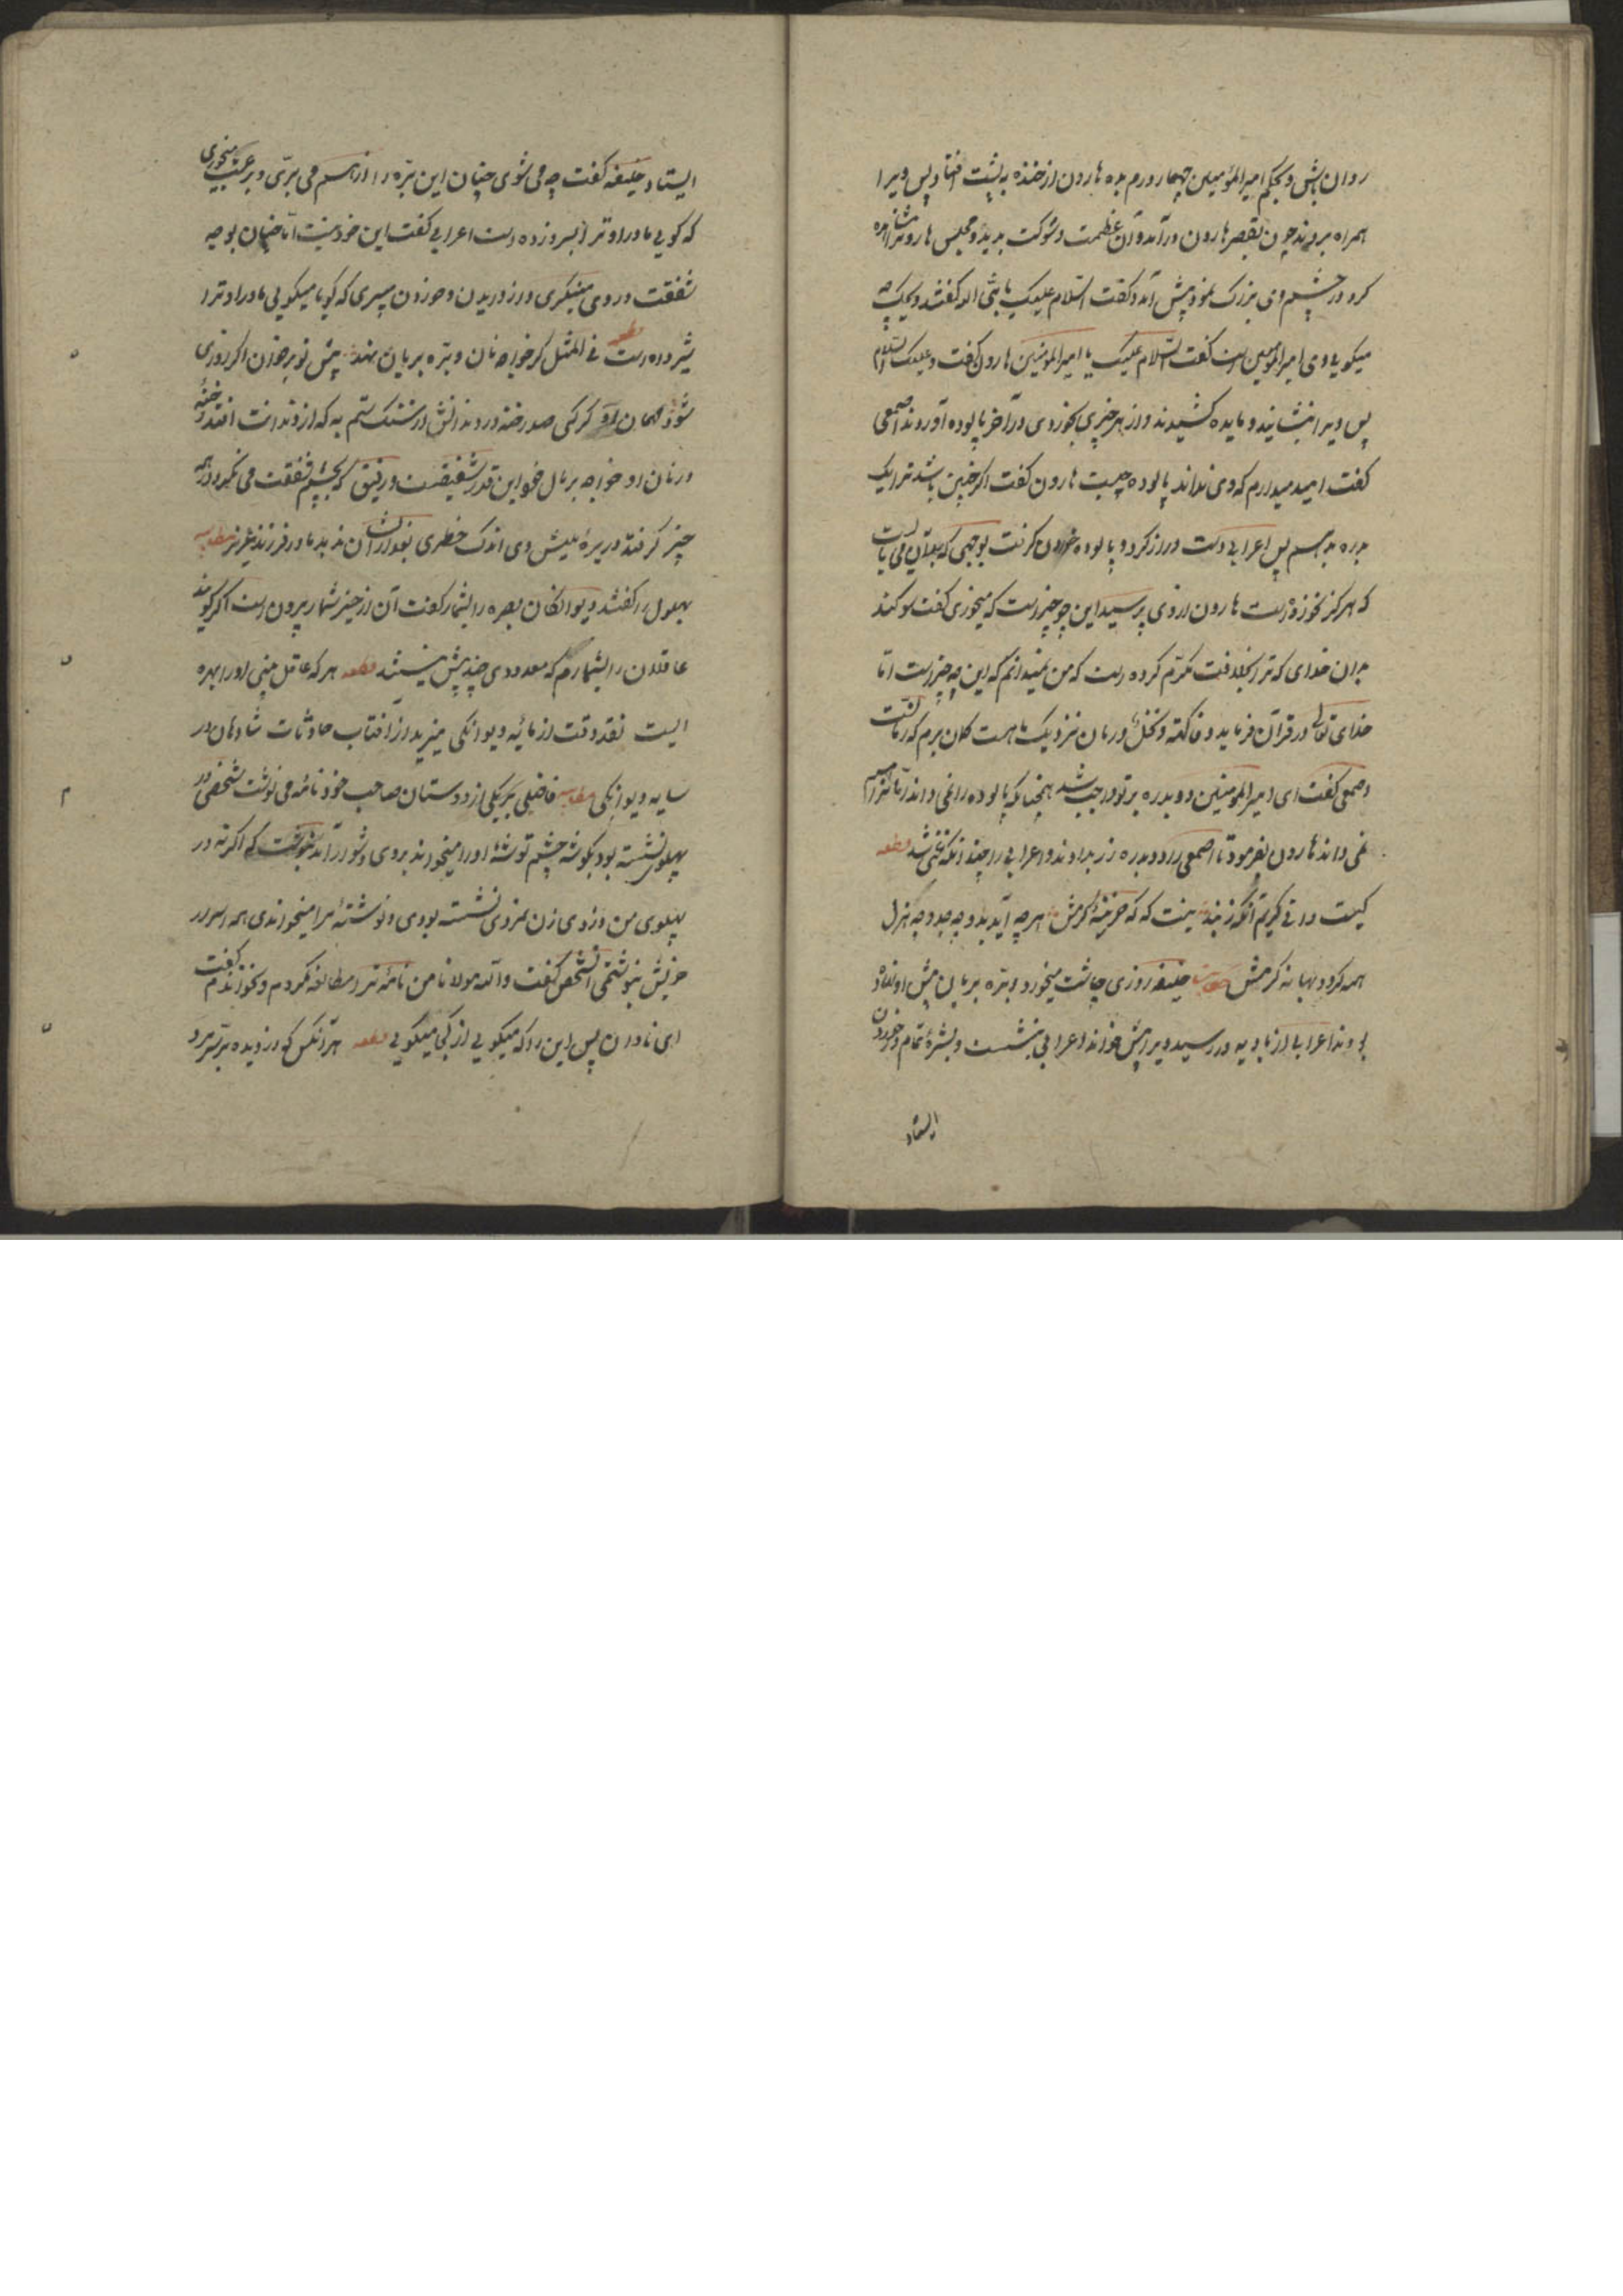 روان باش و بحکم امیرالمؤمنین چهار درم بده هارون از خنده به پشت افتاد پس ویرا
همراه بردند چون بقصر هارون درآمد و آن عظمت و شوکت بدید و مجلس هارون مشاهده
کرد در چشم وی بزرگ نمود پیش آمد و گفت السلام علیک یا نبی الله گفتند ویحک چه
میگویی وی امیرالمؤمنین است گفت السلام علیک یا امیرالمومنین هارون گفت و علیک السلام
پس ویرا بنشانیدند و مایده کشیدند و از هر چیزی بخوردی در آخر پالوده آوردند اصمعی
گفت امید میدارم که وی نداند پالوده چیست هارون گفت اگر چنین باشد ترا یک
بدره بدهم پس اعرابی دست دراز کرد و پالوده خوردن گرفت بوجهی که
که هرگز نخورده است هارون از وی پرسید این چه چیزست که میخوری گفت سوکند
بدان خدای که ترا بخلافت مکرم کرده است که من نمیدانم که این چه چیزست اما
خدای تعالی در قرآن فرماید و فاکهة و نخل و رمان نزدیک ما هست کمان برم که رمانست
اصمعی گفت ای امیرالمومنین دو بدره بر تو واجب شد همچنانکه پالوده را نمی داند رمان را هم
نمی داند هارون بفرمود تا اصمعی را دو بدره زر بدادند و اعرابی را چندانکه غنی شد قطعه
کیست دانی کریم آنکه زند که خزینه کرمش هر چه آید بدو چه جد و چه هزل
همه گردد بهانه کرمش مطایبه خلیفه روزی چاشت میخورد و بره بریان پیش او نهاده
بودند اعرابی از بادیه در رسید ویرا پیش خواند اعرابی بنشست و بشره تمام در خوردن
ایستاد
ایستاد خلیفه گفت چه می شوی چنان این بره را از هم می بری و برغبت میخوری
که گویی مادر او ترا بسرو زده است اعرابی گفت این خود نیست اما چنان بوجه
شفقت در وی مینگری و از دریدن و خوردن میپرسی که گویا میگویی مادر او ترا
شیر داده است قطعه فی المثل گر خواجه نان و بره بریان نهند پیش تو بر خوان اگر روزی
شود مهمان او گر کنی صد رخنه در دندانش از سنگ ستم به که از دندانت افتد رخنه
در نان او خواجه بر مال خود این قدر شفیقست و رفیق که بچشم شفقت می نگرد در همه
چیز گر فتد در بره میش وی اندک خطری مادر و فرزند عزیز مطایبه
بهلول را گفتند دیوانگان بصره را بشمار گفت آن از حیز شمار بیرون است اگر گویند
عاقلان را بشمارم که معدودی چند بیش نیستند قطعه هر که عاقل بینی او را بهره
ایست نقد وقت از مایه دیوانگی میزید از آفتاب حادثات شادمان در
سایه دیوانگی مطایبه فاضلی بر یکی از دوستان صاحب خود نامه می نوشت شخصی در
پهلوش نشسته بود بگوشه چشم نوشته او را میخواند بر وی دشوار آمد بنوشت که اگر نه در
پهلوی من دزدی زن بمزدی نشسته بودی و نوشته مرا میخواندی همه اسرار
خویش بنوشتمی آنشخص گفت والله مولانا من نامه ترا مطالعه نکردم و نخواندم گفت
ای نادان پس این را که میگویی از کجا میگویی قطعه هر آنکس که دزدیده بر سر مرد